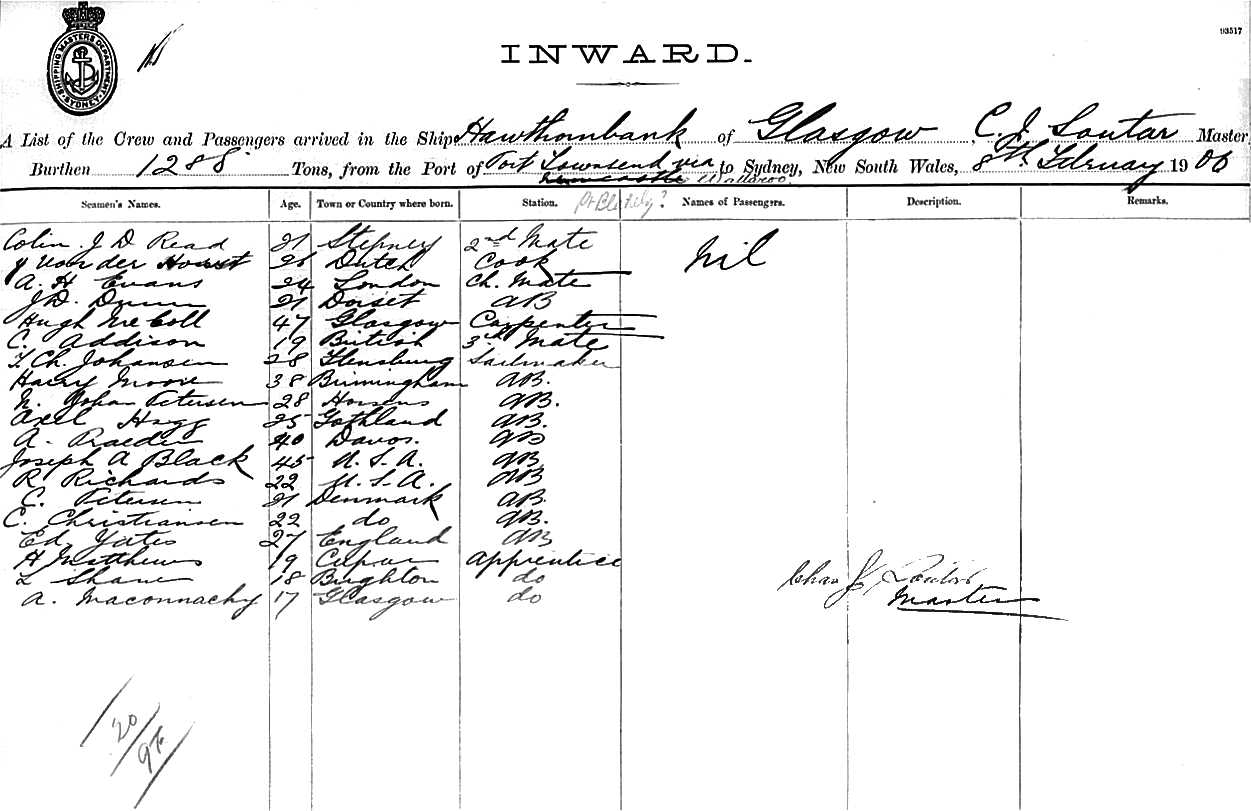 SHIPPING MASTERS DEPARTMENT SYDNEY
93517
INWARD.
A List of the Crew and Passengers arrived in the Ship Hawthornbank of Glasgow, C. J. Soutar Master
Burthen 1288 Tons, from the Port of Port Townsend via to Sydney, New South Wales, 8th February 1906
Newcastle Wallaroo.
Seamen's Names. Age. Town or Country where born. Station. Names of Passengers. Description. Remarks.
Colin J D Read 21 Stepney 2nd Mate Nil
Van der Houst 26 Dutch Cook
A. H Evans 24 London Ch. Mate
J D. Dunn 21 Dorset AB
Hugh McColl 47 Glasgow Carpenter
C. Addison 19 British 3rd Mate
Ch. Johansen 28 Flensburg Sailmaker
Harry Moore 38 Birmingham AB.
N. Johan Petersen 28 Horsens AB.
Axel Hagg 25 Gothland AB.
A. Raeder 40 Davos. AB
Joseph A Black 45 U. S. A. AB
R Richards 22 U. S. A. AB
C. Petersen 21 Denmark AB.
C. Christiansen 22 do AB.
Ed. Yates 27 England AB
H Matthews 19 Cupar Apprentice
L Shane 18 Brighton do
A. Maconnachy 17 Glasgow do
Chas J. Soutar
Master
20/96